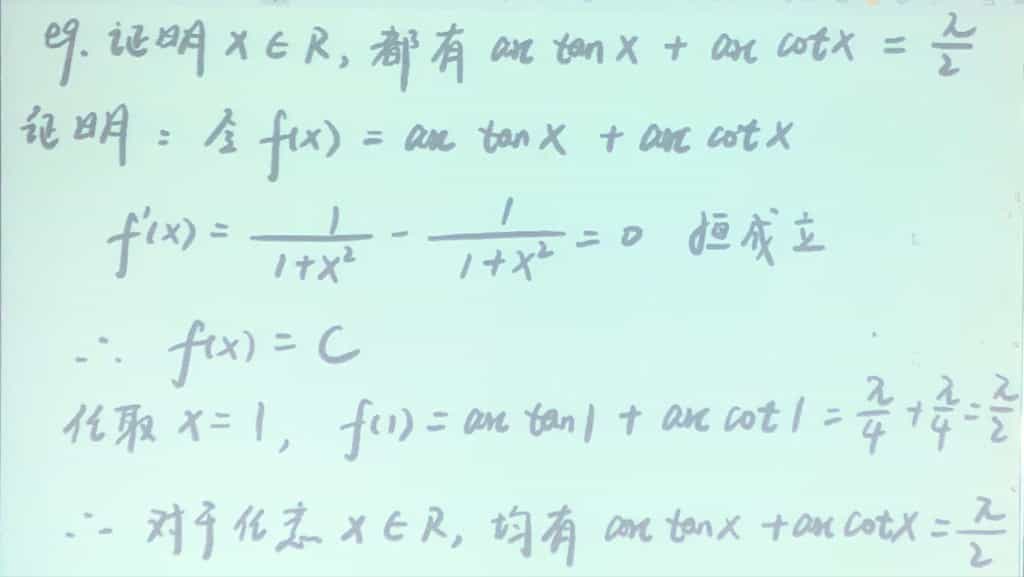 eg. 证明 x ∈ R, 都有 arc tan x + arc cot x = π/2
证明: 令 f(x) = arc tan x + arc cot x
f'(x) = 1/(1+x²) - 1/(1+x²) = 0 恒成立
∴ f(x) = C
任取 x = 1, f(1) = arc tan 1 + arc cot 1 = π/4 + π/4 = π/2
∴ 对于任意 x ∈ R, 均有 arc tan x + arc cot x = π/2